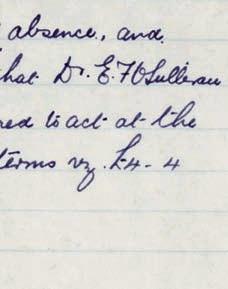 absence, and
that Dr. E. F. O'Sullivan
red to act at the
terms vz. £4-4